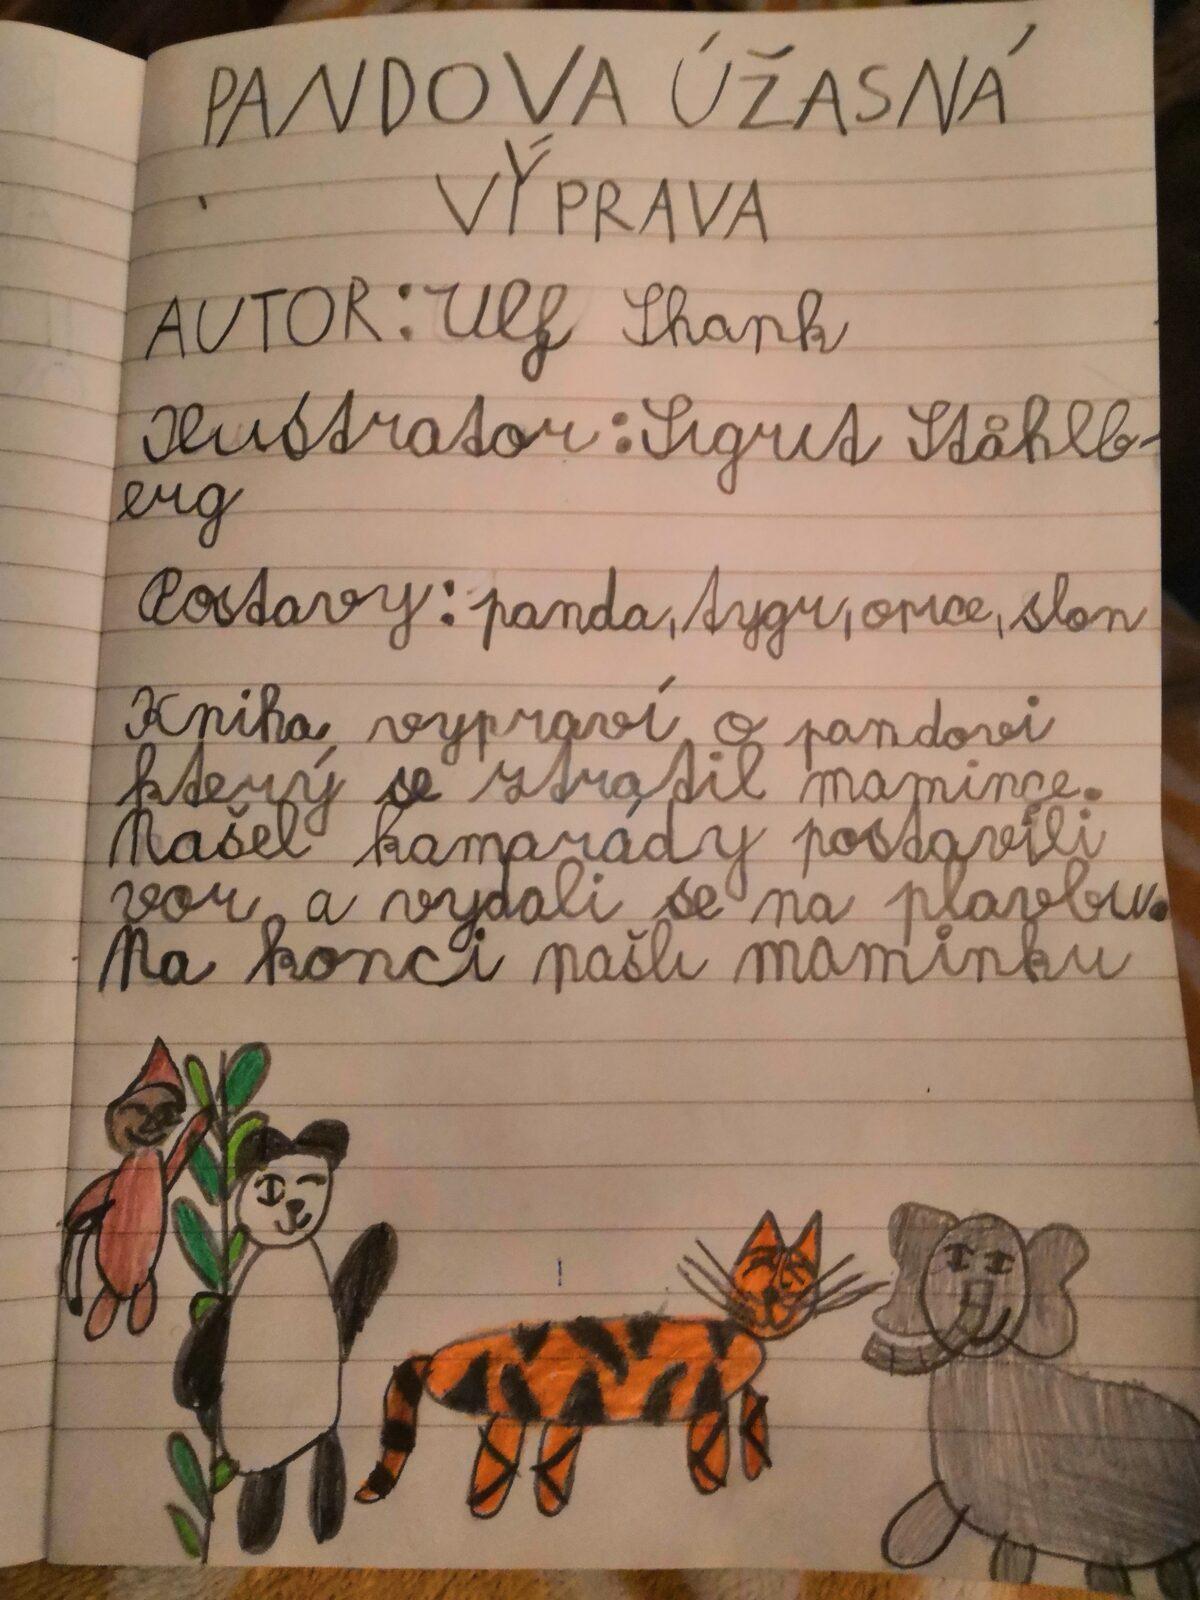 PANDOVA ÚŽASNÁ
VÝPRAVA
AUTOR: Ulf Shank
Ilustrator: Sigrit Ståhlb-
erg
Postavy: panda, tygr, opice, slon
Kniha vypraví o pandovi
který se ztratil mamince.
Našel kamarády postavili
vor a vydali se na plavbu.
Na konci našli maminku